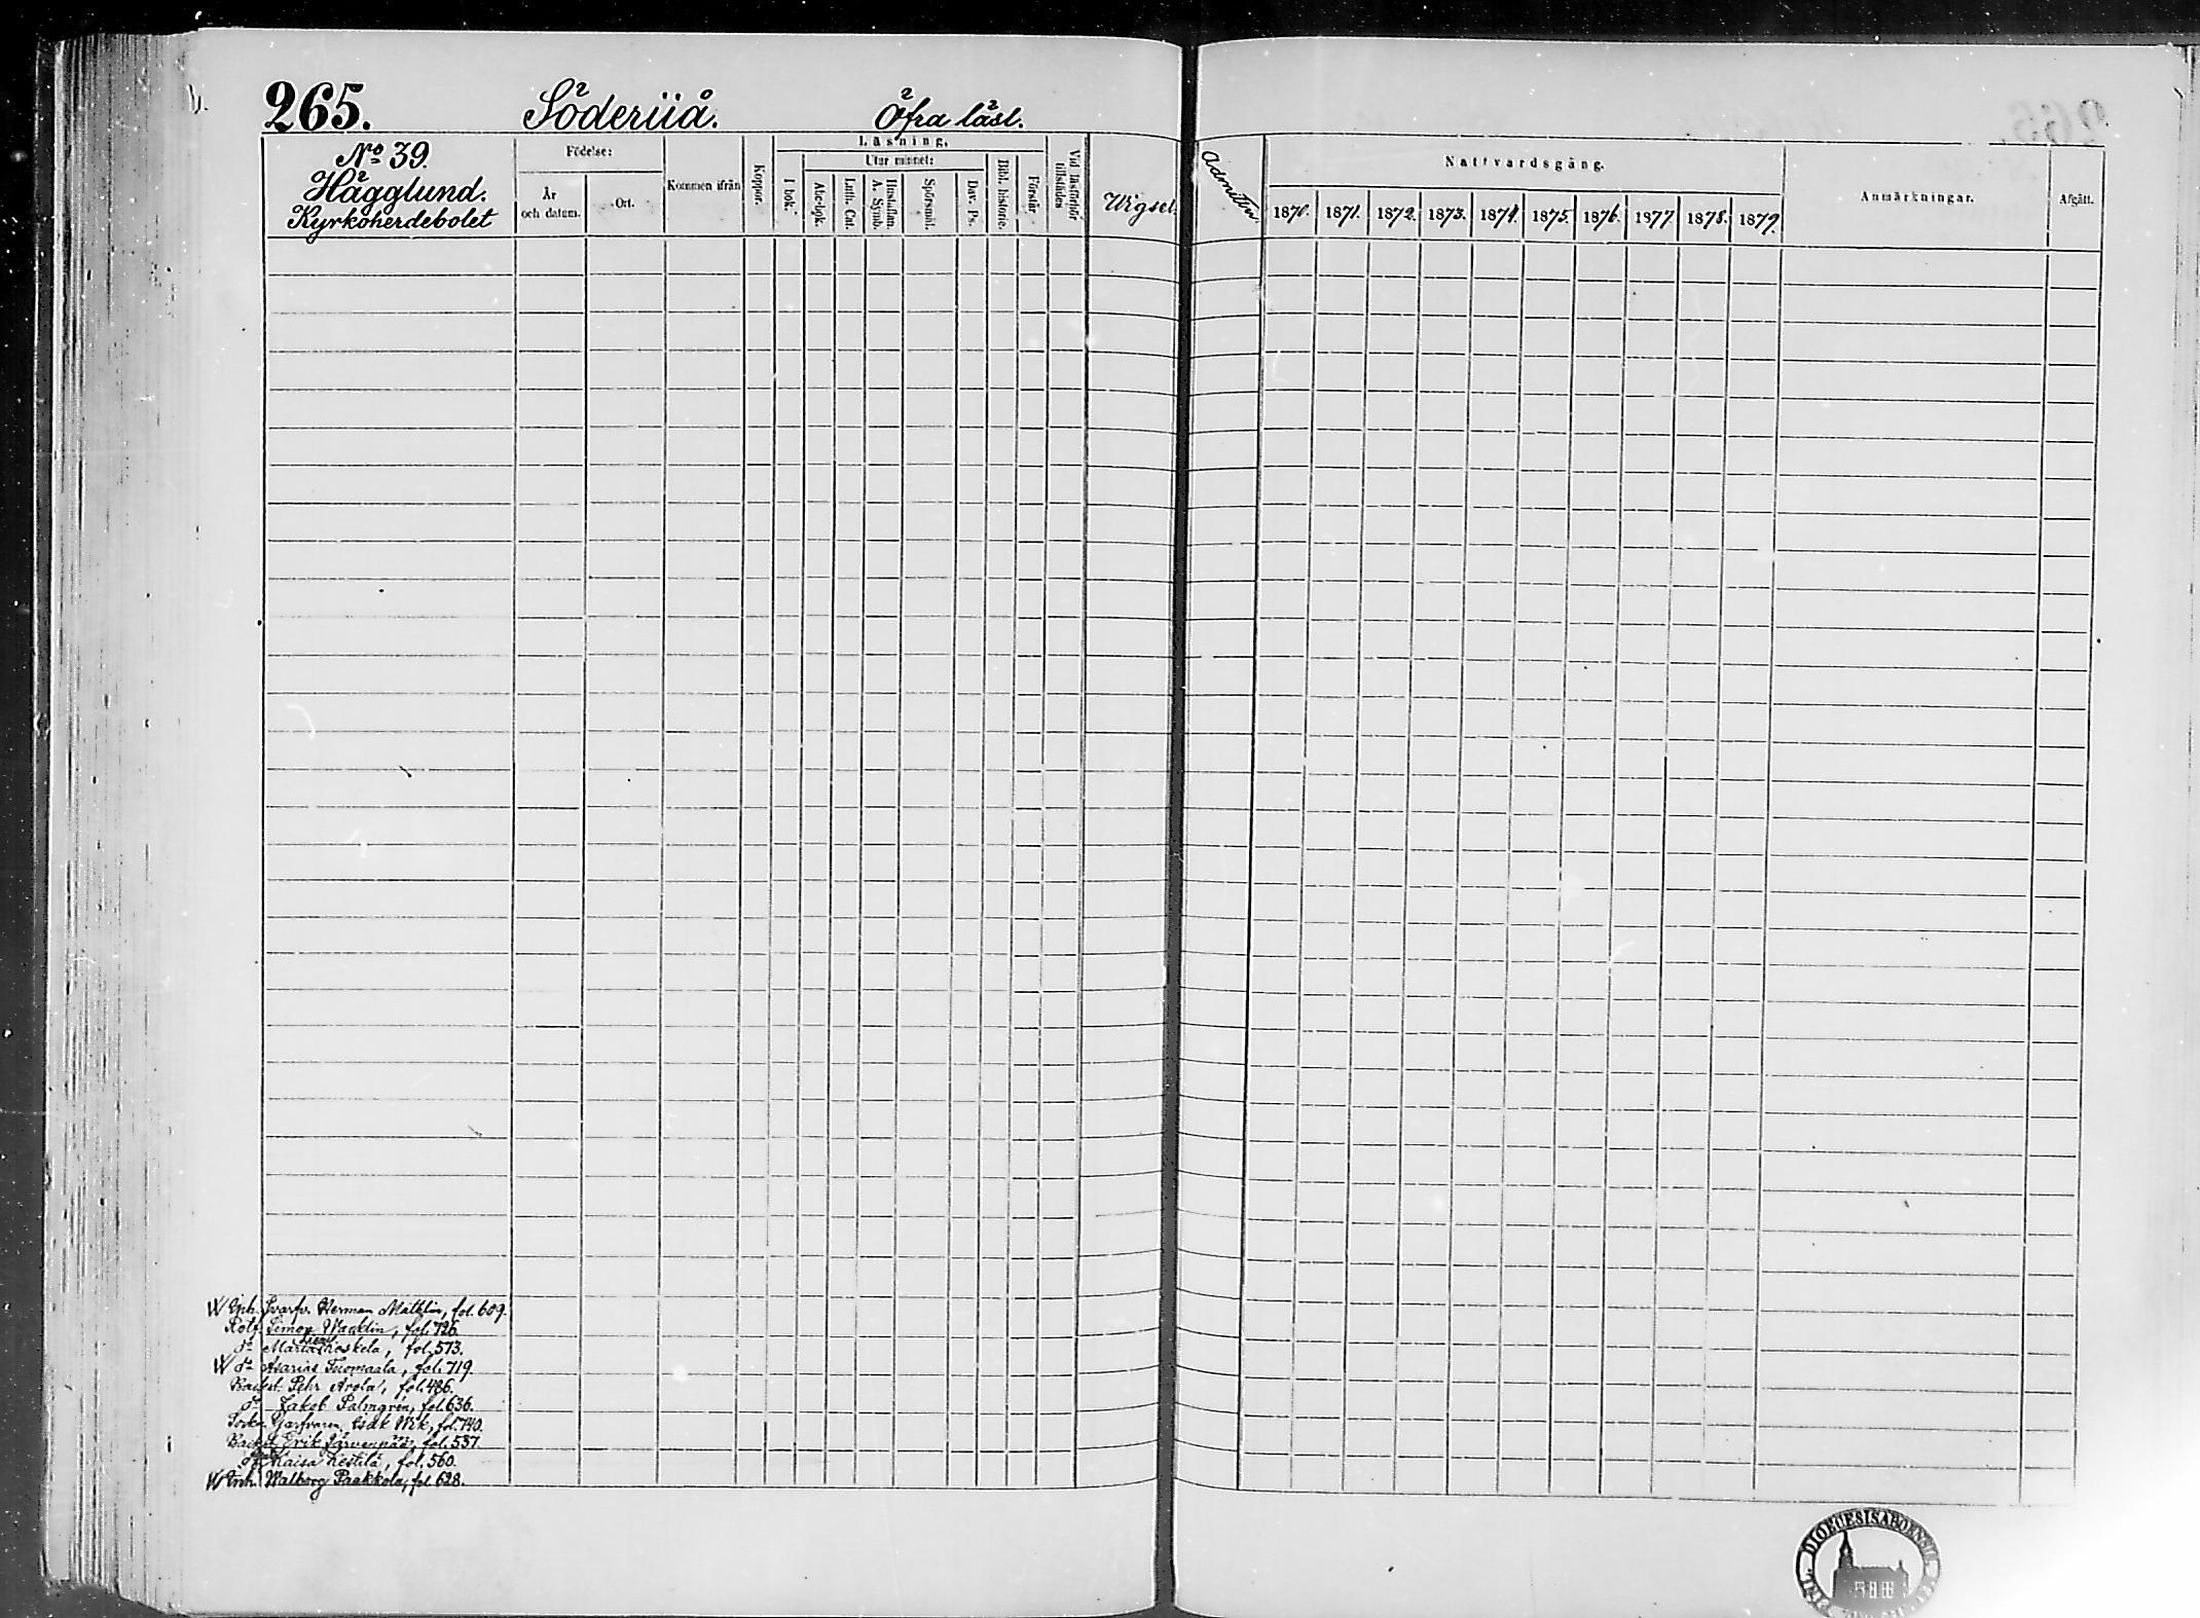 265. Söderiiå. Öfra läsl.
No 39.
Hägglund.
Kyrkoherdebolet
Födelse:
År och datum.
Ort.
Kommen ifrån
Koppor.
Läsning.
I bok.
Utur minnet:
Abc-bok.
Luth. Cat.
Hustaflan. A. Symb.
Spörsmål.
Dav. Ps.
Bibl. historie.
Förstår
Vid läsförhör tillstädes
Wigsel.
Admitten.
Nattvardsgång.
1870. 1871. 1872. 1873. 1874. 1875. 1876. 1877 1878. 1879.
Anmärkningar.
Afgått.
Herman Mathlin, fol. 609.
Simon Wacklin, fol. 726.
Maria Koskela, fol. 573.
W do Asarias Tuomaala, fol. 719.
Backst. Pehr Arola, fol. 486.
do Jakob Palmgrén, fol. 636.
Garfvaren Isak Wik, fol. 740.
Backst. Erik Järvenpää, fol. 537.
Kaisa Kestilä, fol. 560.
W Enk. Walborg Paakkola, fol. 628.
DIOECESIS ABOENSIS